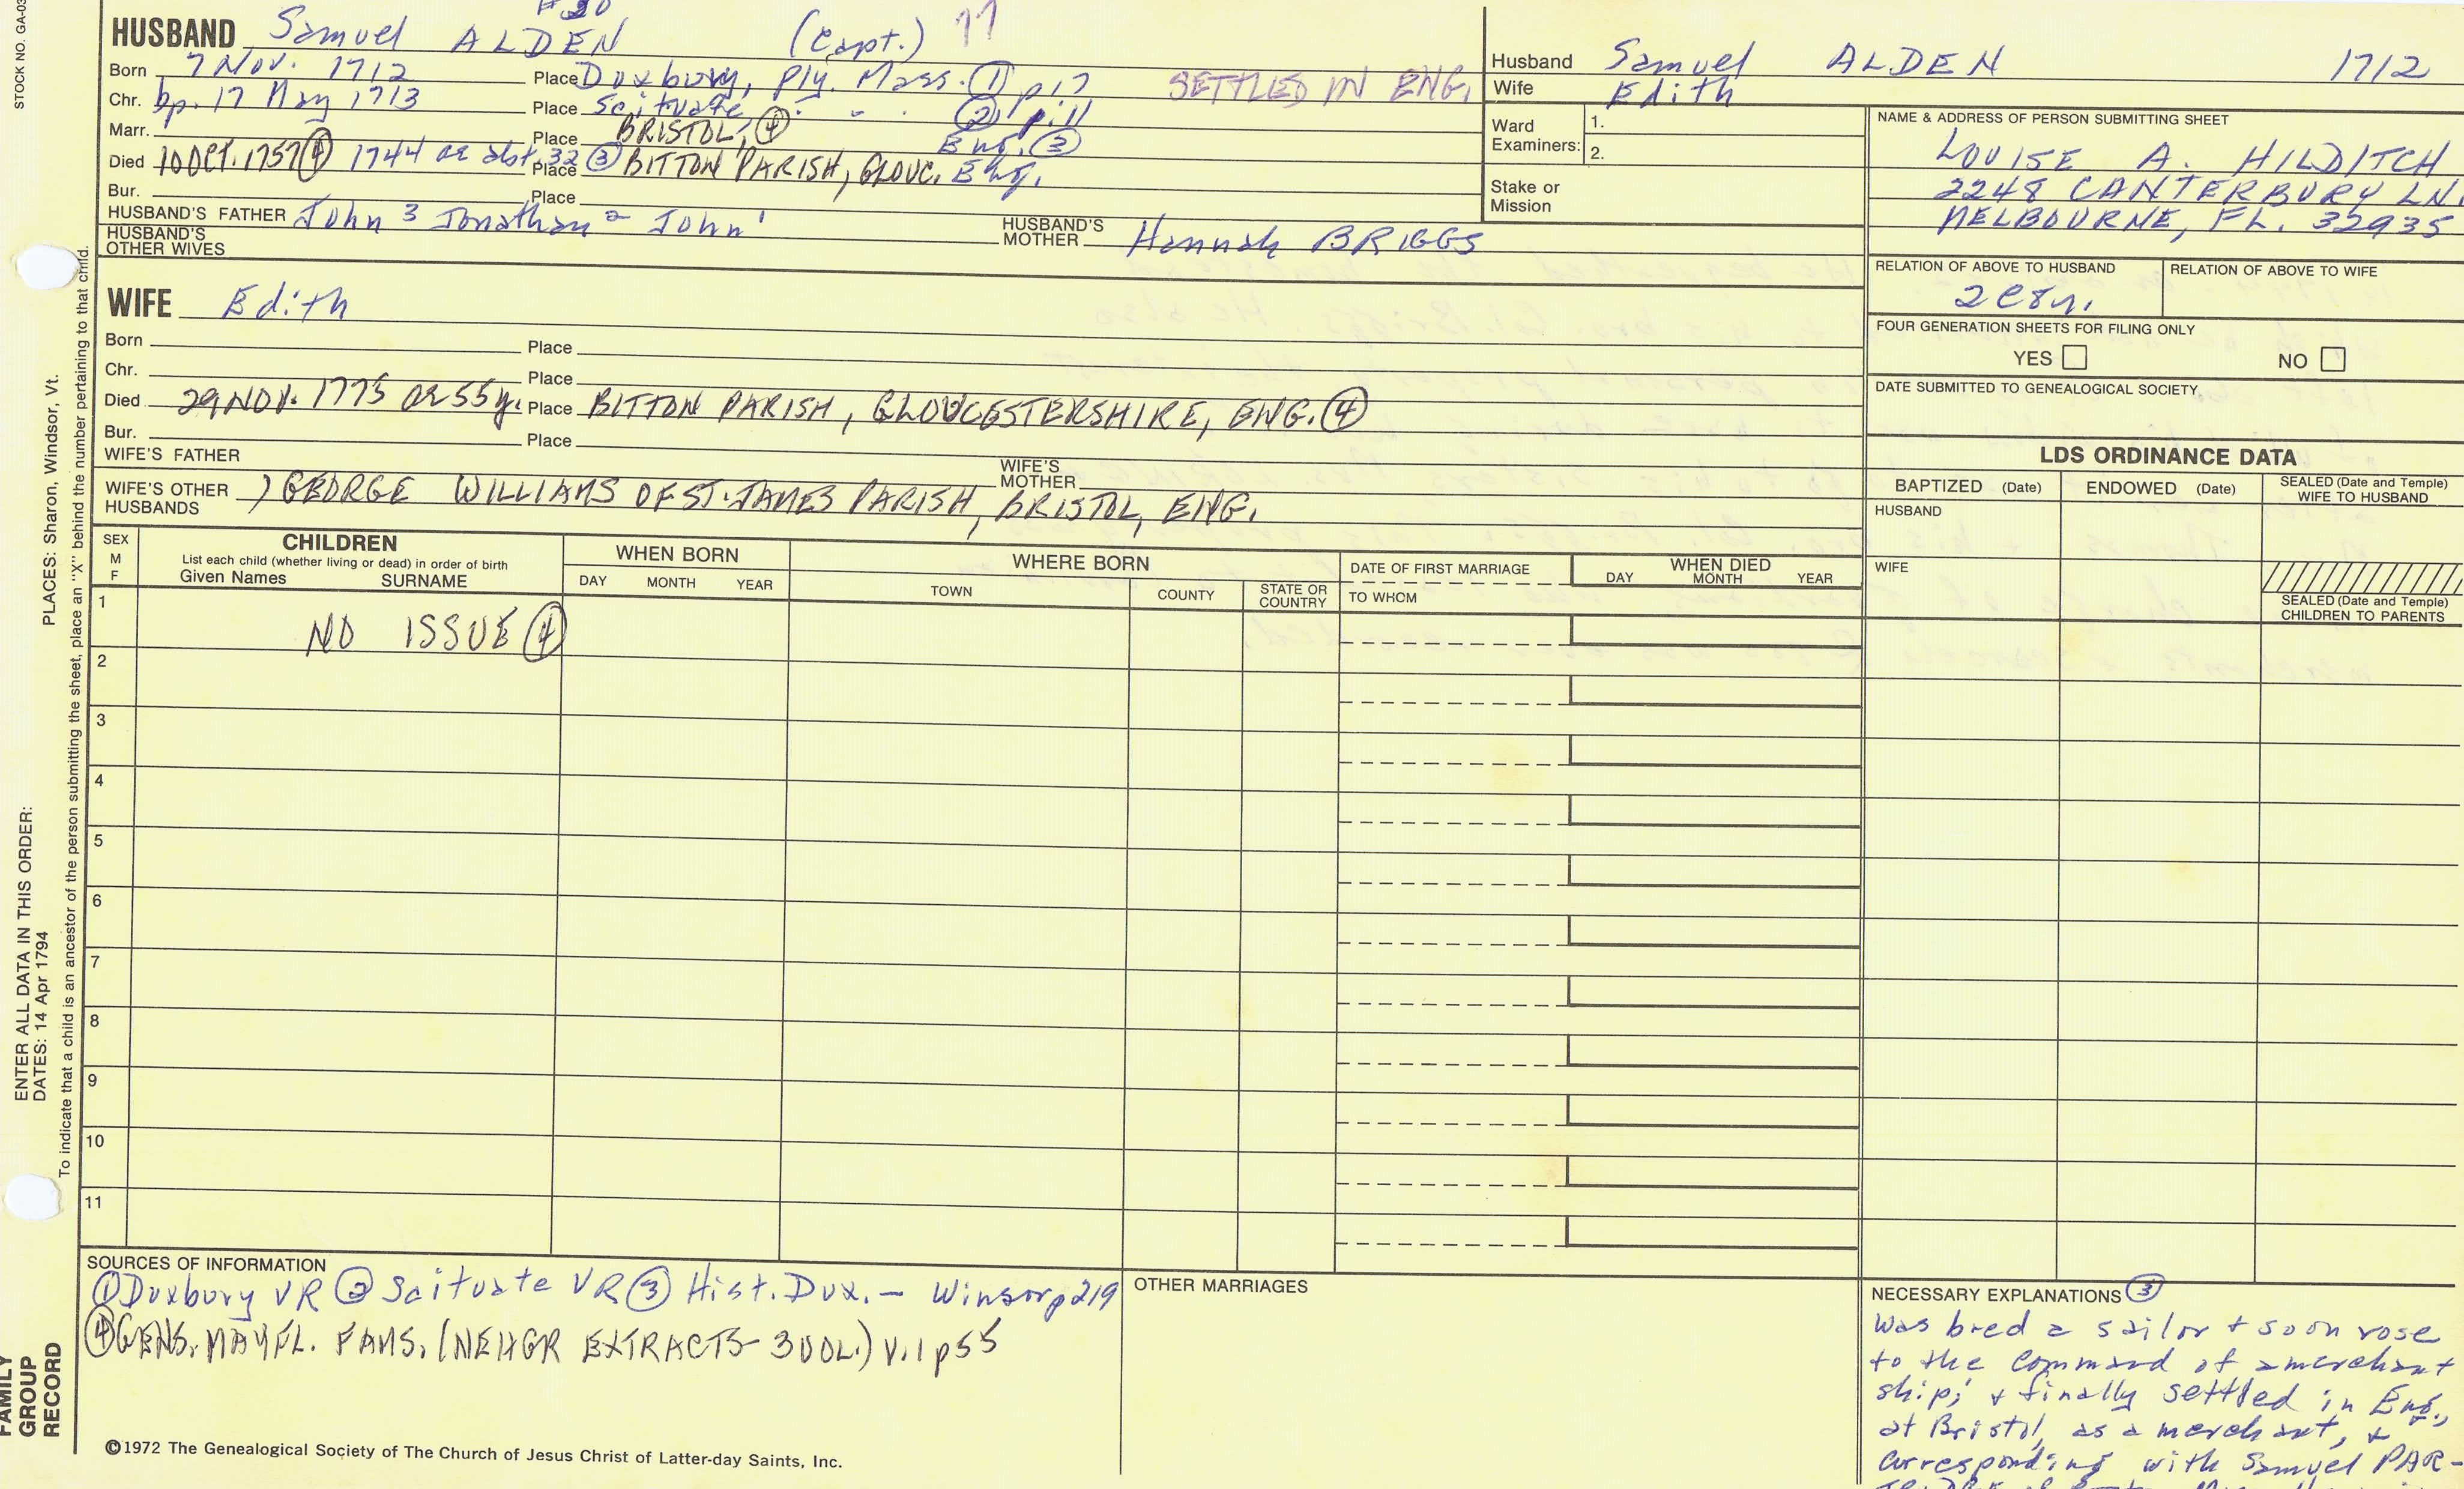 STOCK NO. GA-03
#20
HUSBAND Samuel ALDEN (Capt.) 11
Born 7 Nov. 1712 Place Duxbury, Ply. Mass. ① p17 SETTLED IN ENG.
Chr. bp. 17 May 1713 Place Scituate, " " ② p.11
Marr. Place BRISTOL, ④ Eng. ③
Died 10 OCT. 1757 ④ 1744 ae abt. 32 ③ Place BITTON PARISH, GLOUC. Eng.
Bur. Place
HUSBAND'S FATHER John 3 Jonathan 2 John 1 HUSBAND'S MOTHER Hannah BRIGGS
HUSBAND'S OTHER WIVES
WIFE Edith
Born Place
Chr. Place
Died 29 NOV. 1775 ae 55 y. Place BITTON PARISH, GLOUCESTERSHIRE, ENG. ④
Bur. Place
WIFE'S FATHER WIFE'S MOTHER
WIFE'S OTHER HUSBANDS ) GEORGE WILLIAMS OF ST. JAMES PARISH, BRISTOL, ENG.
Husband Samuel ALDEN 1712
Wife Edith
Ward Examiners: 1.
2.
Stake or Mission
NAME & ADDRESS OF PERSON SUBMITTING SHEET
LOUISE A. HILDITCH
2248 CANTERBURY LN.
MELBOURNE, FL. 32935
RELATION OF ABOVE TO HUSBAND RELATION OF ABOVE TO WIFE
2C8r.
FOUR GENERATION SHEETS FOR FILING ONLY
YES NO
DATE SUBMITTED TO GENEALOGICAL SOCIETY
LDS ORDINANCE DATA
BAPTIZED (Date) ENDOWED (Date) SEALED (Date and Temple) WIFE TO HUSBAND
HUSBAND
WIFE
SEALED (Date and Temple)
CHILDREN TO PARENTS
SEX M F CHILDREN
List each child (whether living or dead) in order of birth
Given Names SURNAME
WHEN BORN
DAY MONTH YEAR
WHERE BORN
TOWN COUNTY STATE OR COUNTRY
DATE OF FIRST MARRIAGE
TO WHOM
WHEN DIED
DAY MONTH YEAR
1 NO ISSUE ④
2
3
4
5
6
7
8
9
10
11
SOURCES OF INFORMATION
① Duxbury VR ② Scituate VR ③ Hist. Dux. - Winsor p219
④ GENS. MAYFL. FAMS. (NEHGR EXTRACTS - 3 VOL.) V.1 p55
OTHER MARRIAGES
NECESSARY EXPLANATIONS ③
Was bred a sailor + soon rose
to the command of a merchant
ship; + finally settled in Eng.,
at Bristol, as a merchant, +
corresponding with Samuel PAR-
©1972 The Genealogical Society of The Church of Jesus Christ of Latter-day Saints, Inc.
FAMILY
GROUP
RECORD
ENTER ALL DATA IN THIS ORDER:
DATES: 14 Apr 1794
PLACES: Sharon, Windsor, Vt.
To indicate that a child is an ancestor of the person submitting the sheet, place an "X" behind the number pertaining to that child.